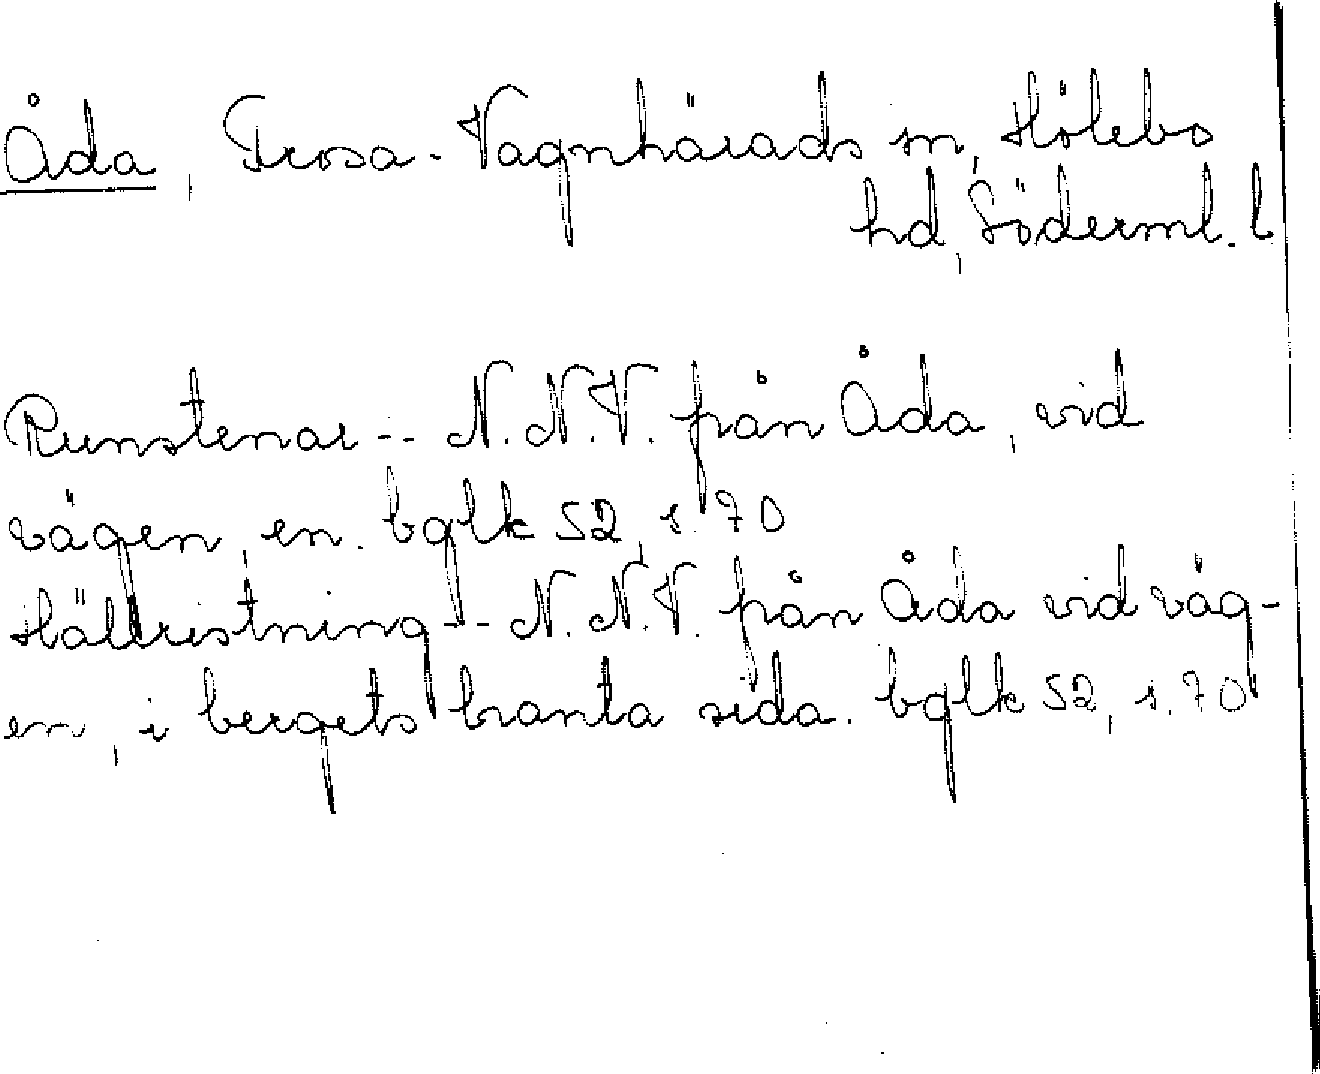 Åda, Trosa-Vagnhärads sn, Hölebo
hd, Söderml. l
Runstenar -- N.N.V. från Åda, vid
vägen, en. bglk 52, s. 70
Hällristning -- N.N.V. från Åda vid väg-
en, i bergets branta sida. bglk 52, s. 70